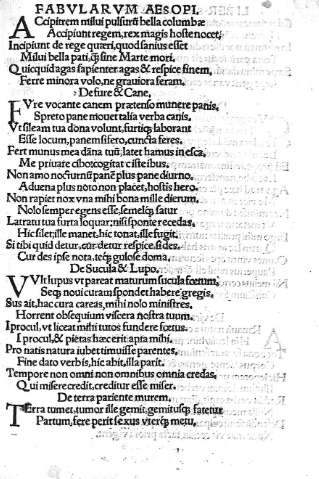 FABVLARVM AESOPI.
ACcipitrem milui pulsurū bella columbæ
Accipiunt regem, rex magis hoste nocet,
Incipiunt de rege quæri, quod sanius esset
Milui bella pati, q̃ sine Marte mori.
Quicquid agas sapienter agas & respice finem,
Ferre minora volo, ne grauiora feram.
De fure & Cane,
FVre vocante canem prætenso munere panis,
Spreto pane mouet talia verba canis.
Vt sileam tua dona volunt, furtiq; laborant
Esse locum, panem si fero, cuncta feres.
Fert munus mea dāna tuū, latet hamus in esca,
Me priuare cibo cogitat iste cibus.
Non amo nocturnū panē plus pane diurno,
Aduena plus noto non placet, hostis hero.
Non rapiet nox vna mihi bona mille dierum.
Nolo semper egens esse, semelq; satur
Latratu tua furta loquar, nisi sponte recedas,
Hic silet, ille manet, hic tonat, ille fugit.
Si tibi quid detur, cur detur respice, si des.
Cur des ipse nota, teq; gulose doma.
De Sucula & Lupo.
VVlt lupus vt pareat maturum sucula fœtum,
Seq; noui curam spondet habere gregis,
Sus ait, hac cura careas, mihi nolo ministres,
Horrent obsequium viscera nostra tuum.
I procul, vt liceat mihi tutos fundere fœtus.
I procul, & pietas hæc erit apta mihi.
Pro natis natura iubet timuisse parentes,
Fine dato verbis, hic abit, illa parit.
Tempore non omni non omnibus omnia credas,
Qui misere credit, creditur esse miser.
De terra pariente murem.
TErra tumet, tumor ille gemit, gemitusq; fatetur
Partum, fere perit sexus vterq; metu,